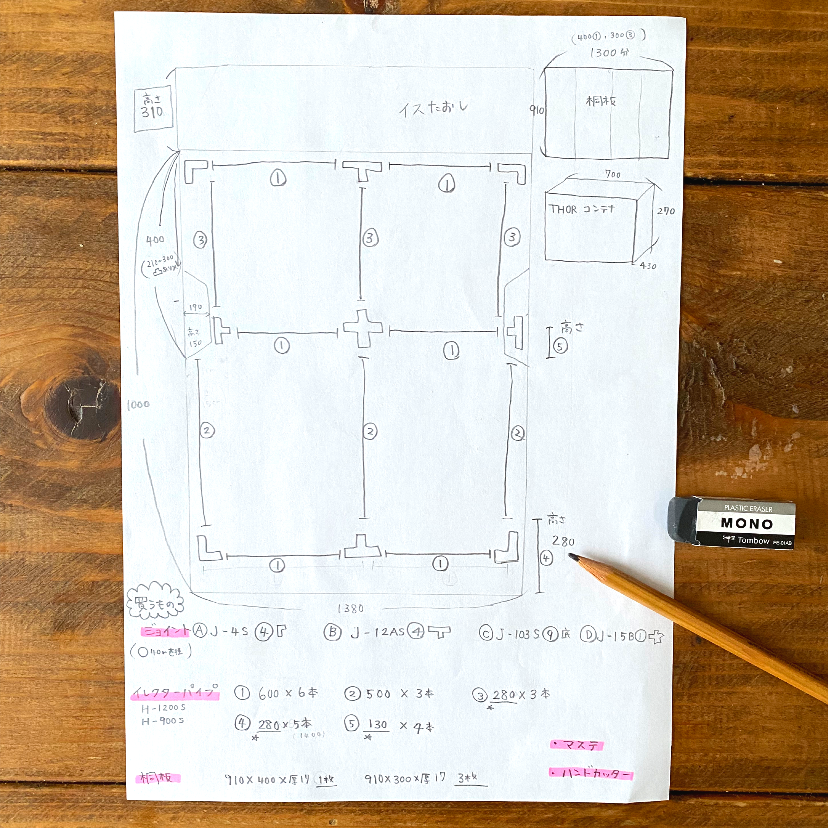 (400①, 300③)
1300分
高さ
310
イスたおし
910
桐板
①
①
700
THOR コンテナ
270
430
③
③
③
400
190
高さ
150
①
①
高さ
⑤
1000
②
②
②
高さ
280
④
①
①
PLASTIC ERASER
MONO
Tombow
1380
買うもの
ジョイント Ⓐ J-4S ④ Ⓑ J-12AS ④ Ⓒ J-103S ⑨ Ⓓ J-15B ①
イレクターパイプ ① 600×6本 ② 500×3本 ③ 280×3本
H-1200S
H-900S
④ 280×5本 ⑤ 130×4本
・マステ
・ハンドカッター
桐板 910×400×厚17 1枚 910×300×厚17 3枚